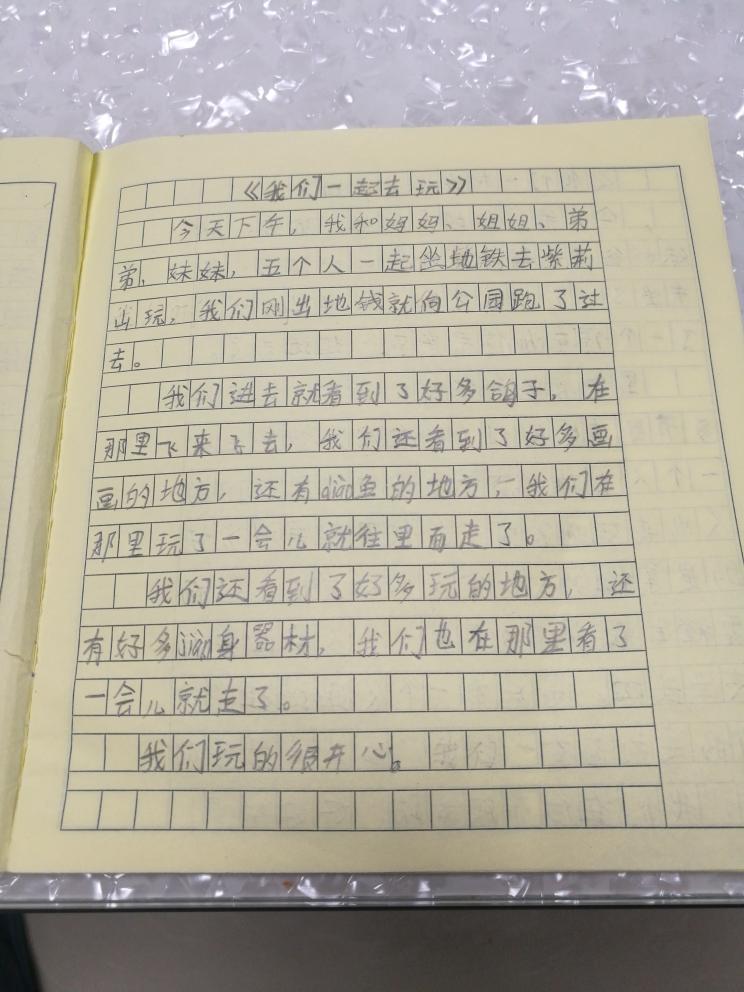 《我们一起去玩》
今天下午，我和妈妈、姐姐、弟
弟、妹妹，五个人一起坐地铁去紫荆
山玩，我们刚出地钱就向公园跑了过
去。
我们进去就看到了好多鸽子，在
那里飞来飞去，我们还看到了好多画
画的地方，还有diào鱼的地方，我们在
那里玩了一会儿就往里面走了。
我们还看到了好多玩的地方，还
有好多jiàn身器材，我们也在那里看了
一会儿就走了。
我们玩的很开心。